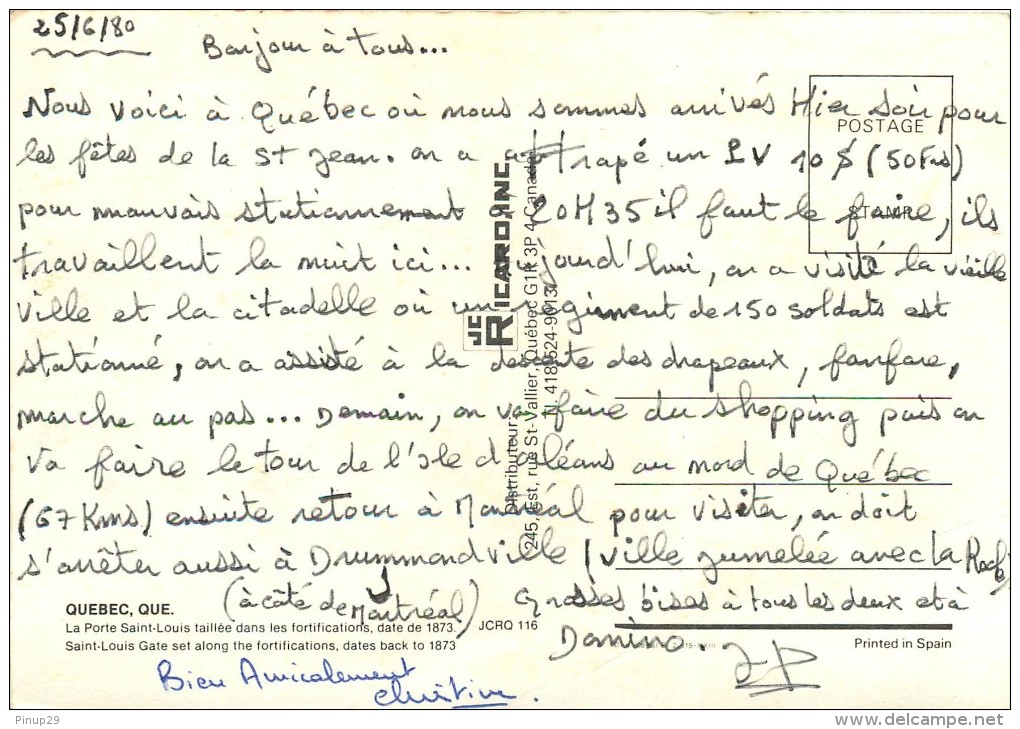 25/6/80
Bonjour à tous...
Nous voici à Québec où nous sommes arrivés Hier soir pour
les fêtes de la St Jean. on a attrapé un PV 10 $ (50 Frs)
pour mauvais stationnement 20H35 il faut le faire, ils
travaillent la nuit ici... aujourd'hui, on a visité la vieille
ville et la citadelle où un régiment de 150 soldats est
stationné, on a assisté à la descente des drapeaux, fanfare,
marche au pas... Demain, on va faire du shopping puis on
va faire le tour de l'Isle d'orléans au nord de Québec
(67 Kms) ensuite retour à Montréal pour visiter, on doit
s'arrêter aussi à Drummondville (ville jumelée avec la Roche
(à côté de Montréal) Grosses bises à tous les deux et à
Domino. JP
Bien Amicalement
Christine.
POSTAGE
STAMP
JC RICARD INC.
Distributeur
245, Est, rue St-Vallier, Québec G1K 3P 4 Canada
418-524-9013
QUEBEC, QUE.
La Porte Saint-Louis taillée dans les fortifications, date de 1873.
Saint-Louis Gate set along the fortifications, dates back to 1873
JCRQ 116
Printed in Spain
Pinup29
delcampe.net